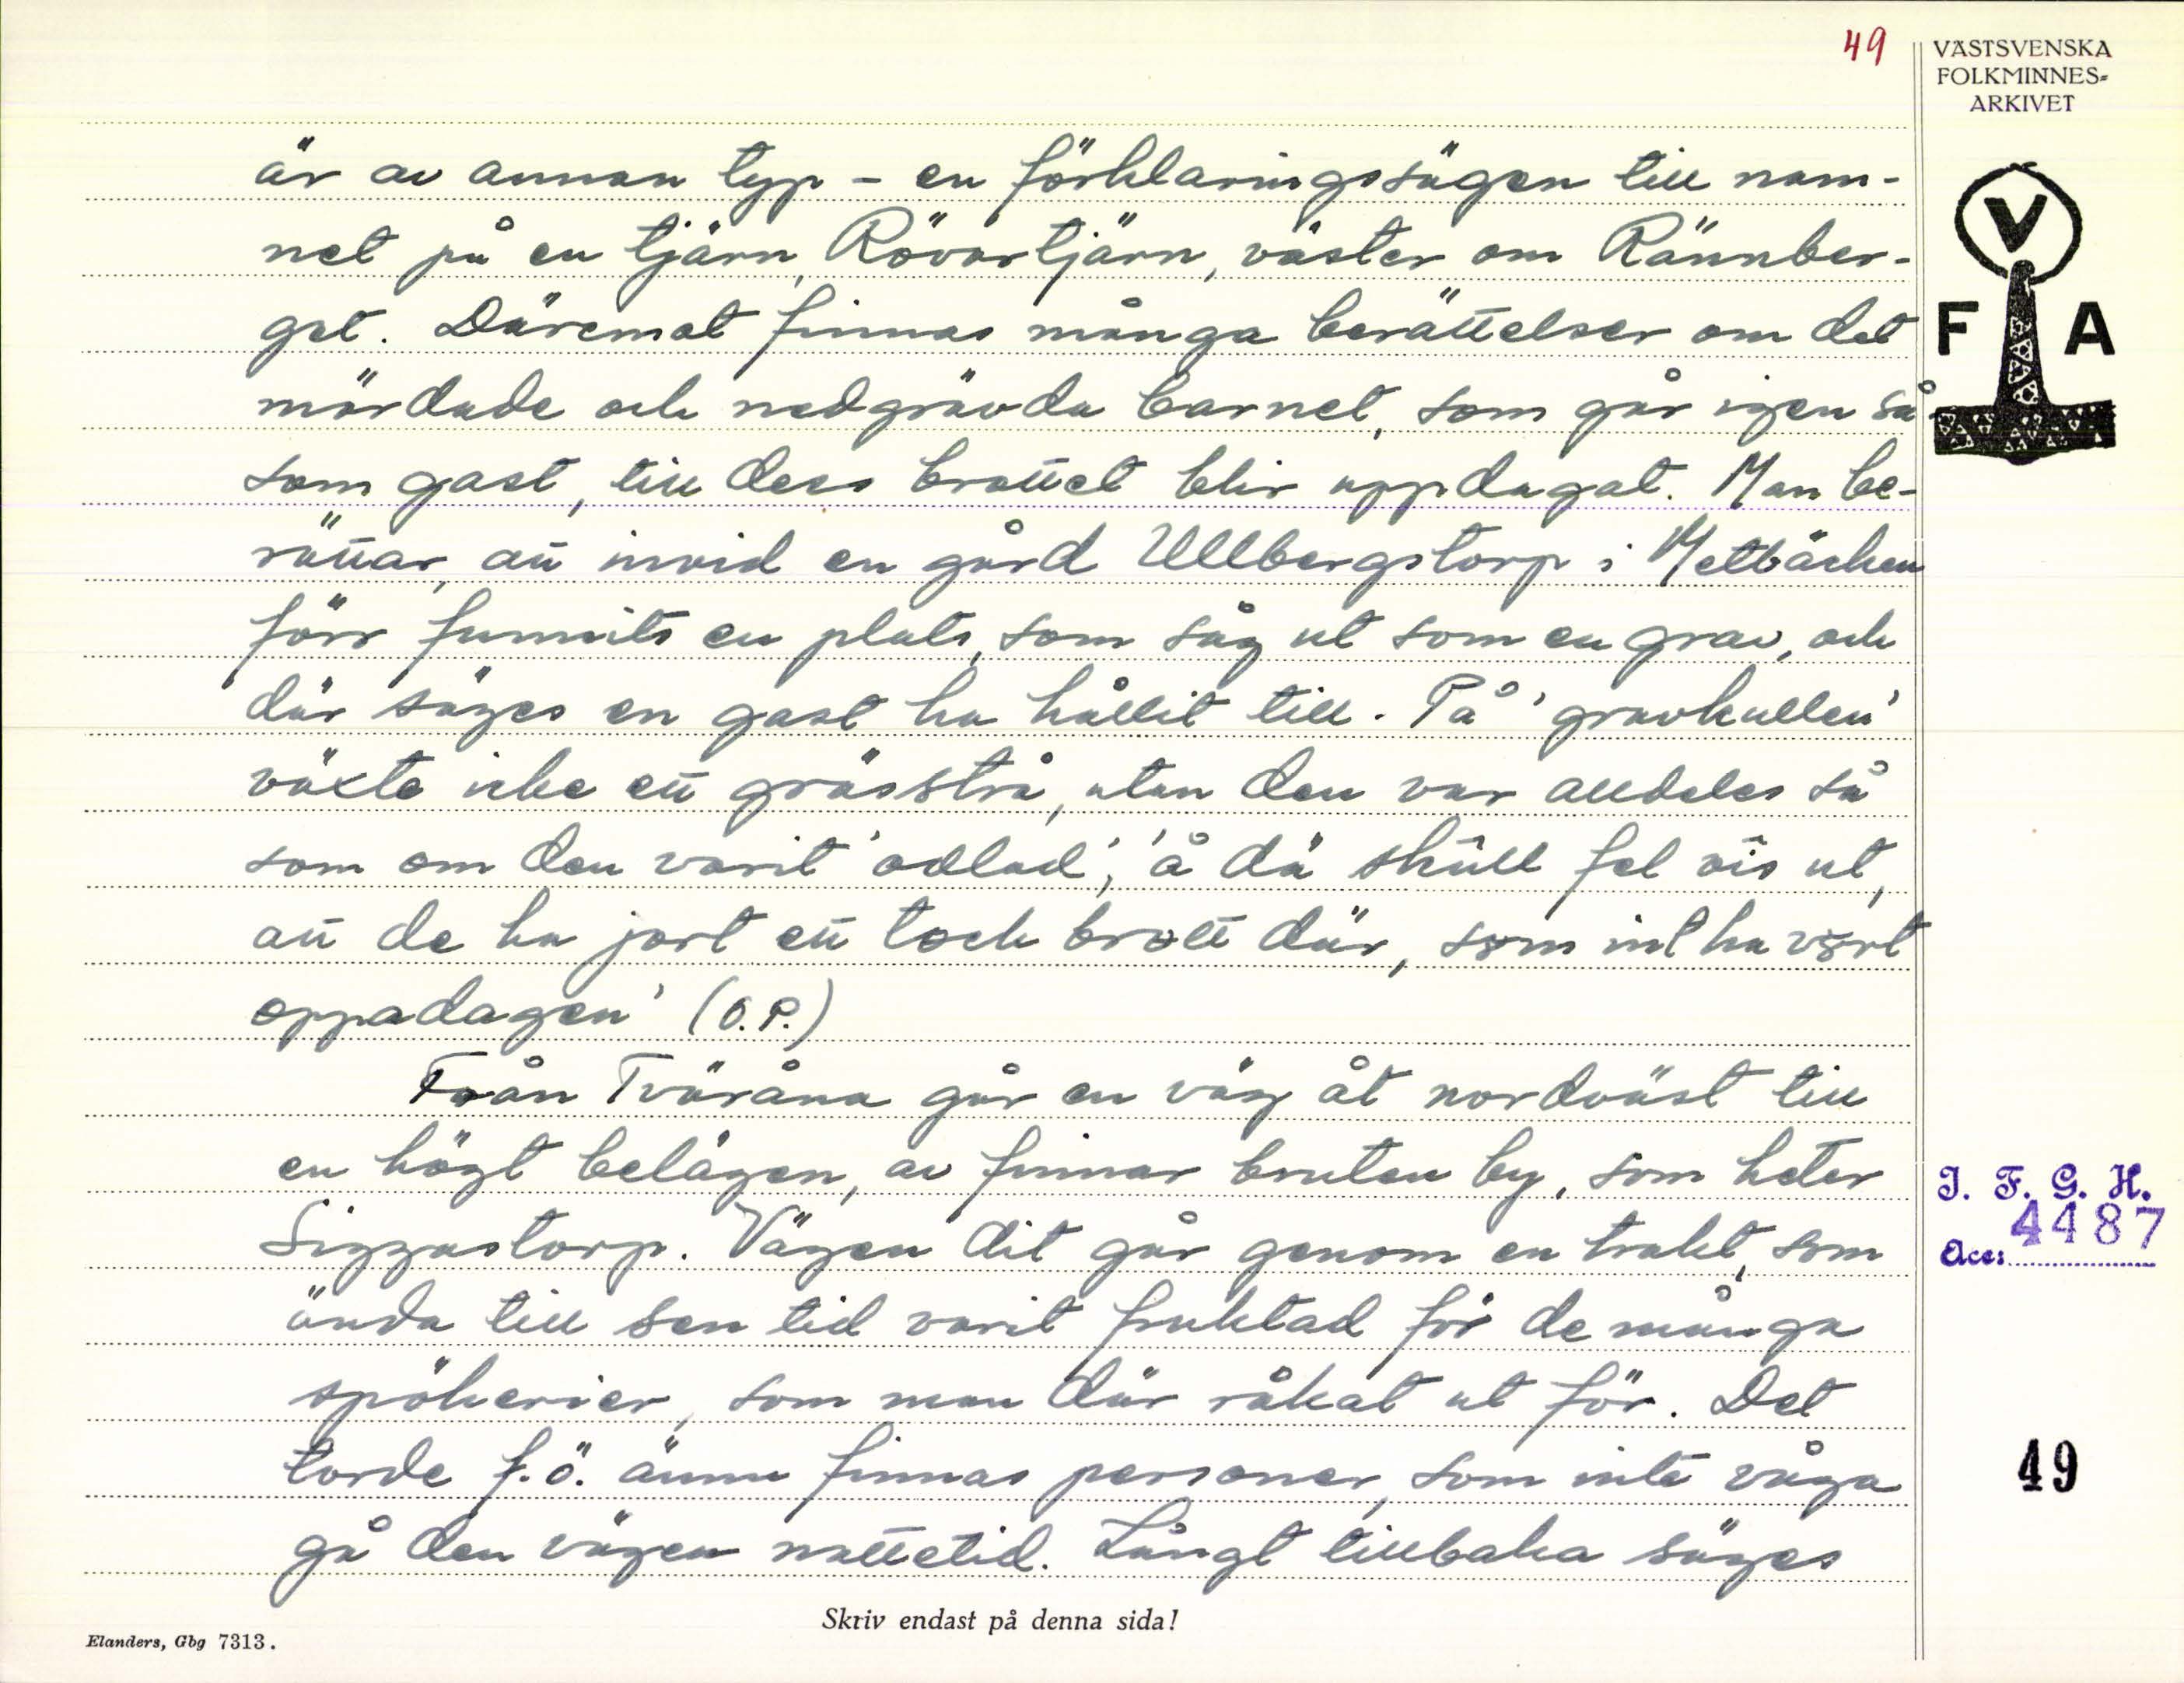 49
VÄSTSVENSKA
FOLKMINNES=
ARKIVET
V
F A
är av annan typ - en förklaringssägen till nam-
net på en tjärn, Rövartjärn, väster om Rännber-
get. Däremot finnas många berättelser om det
mördade och nedgrävda barnet, som går igen så
som gast, till dess brottet blir uppdagat. Man be-
rättar, att invid en gård Ullbergstorp i Mettbäcken
förr funnits en plats, som såg ut som en grav, och
där säges en gast ha hållit till. På 'gravkullen'
växte icke ett grässtrå, utan den var alldeles så
som om den varit 'odlad', 'å dä skûll fel vis ut,
att de ha jort ett tock brott där, som int ha vört
oppadagen' (O.P.)
Från Tväråna går en väg åt nordväst till
en högt belägen, av finnar bruten by, som heter
Siggastorp. Vägen dit går genom en trakt, som
ända till sen tid varit fruktad för de många
spökerier, som man där råkat ut för. Det
torde f.ö. ännu finnas personer, som inte våga
gå den vägen nattetid. Långt tillbaka säges
I. F. G. H.
Acc: 4487
49
Skriv endast på denna sida!
Elanders, Gbg 7313.